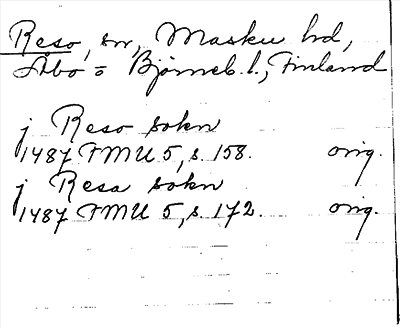 Reso, sn, Masku hd,
Åbo o Björneb. l., Finland
j Reso sokn
1487 FMU 5, s. 158. orig.
j Resa sokn
1487 FMU 5, s. 172. orig.